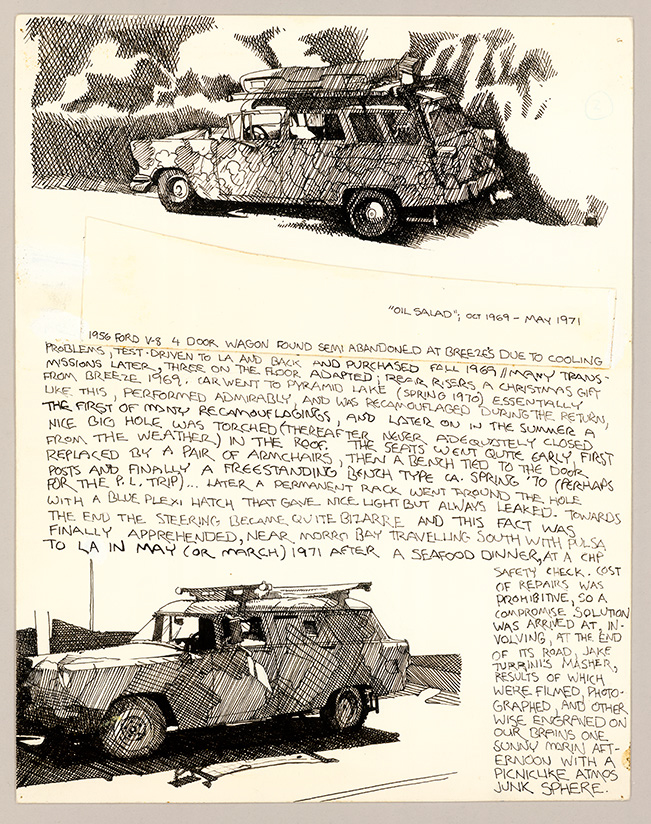 "OIL SALAD"; OCT 1969 - MAY 1971
1956 FORD V-8 4 DOOR WAGON FOUND SEMI ABANDONED AT BREEZE'S DUE TO COOLING
PROBLEMS, TEST-DRIVEN TO LA AND BACK AND PURCHASED FALL 1969 // MANY TRANS-
MISSIONS LATER, THREE ON THE FLOOR ADAPTED; REAR RISERS A CHRISTMAS GIFT
FROM BREEZE 1969. CAR WENT TO PYRAMID LAKE (SPRING 1970) ESSENTIALLY
LIKE THIS, PERFORMED ADMIRABLY, AND WAS RECAMOUFLAGED DURING THE RETURN,
THE FIRST OF MANY RECAMOUFLAGINGS, AND LATER ON IN THE SUMMER A
NICE BIG HOLE WAS TORCHED (THEREAFTER NEVER ADEQUATELY CLOSED
FROM THE WEATHER) IN THE ROOF. THE SEATS WENT QUITE EARLY, FIRST
REPLACED BY A PAIR OF ARMCHAIRS, THEN A BENCH TIED TO THE DOOR
POSTS AND FINALLY A FREESTANDING BENCH TYPE CA. SPRING '70 (PERHAPS
FOR THE P.L. TRIP)... LATER A PERMANENT RACK WENT AROUND THE HOLE
WITH A BLUE PLEXI HATCH THAT GAVE NICE LIGHT BUT ALWAYS LEAKED. TOWARDS
THE END THE STEERING BECAME QUITE BIZARRE AND THIS FACT WAS
FINALLY APPREHENDED, NEAR MORRO BAY TRAVELLING SOUTH WITH PULSA
TO LA IN MAY (OR MARCH) 1971 AFTER A SEAFOOD DINNER, AT A CHP
SAFETY CHECK. COST
OF REPAIRS WAS
PROHIBITIVE, SO A
COMPROMISE SOLUTION
WAS ARRIVED AT, IN-
VOLVING, AT THE END
OF ITS ROAD, JAKE
TURRINI'S MASHER,
RESULTS OF WHICH
WERE FILMED, PHOTO-
GRAPHED, AND OTHER
WISE ENGRAVED ON
OUR BRAINS ONE
SUNNY MARIN AFT-
ERNOON WITH A
PICNICLIKE ATMOS
JUNK SPHERE.